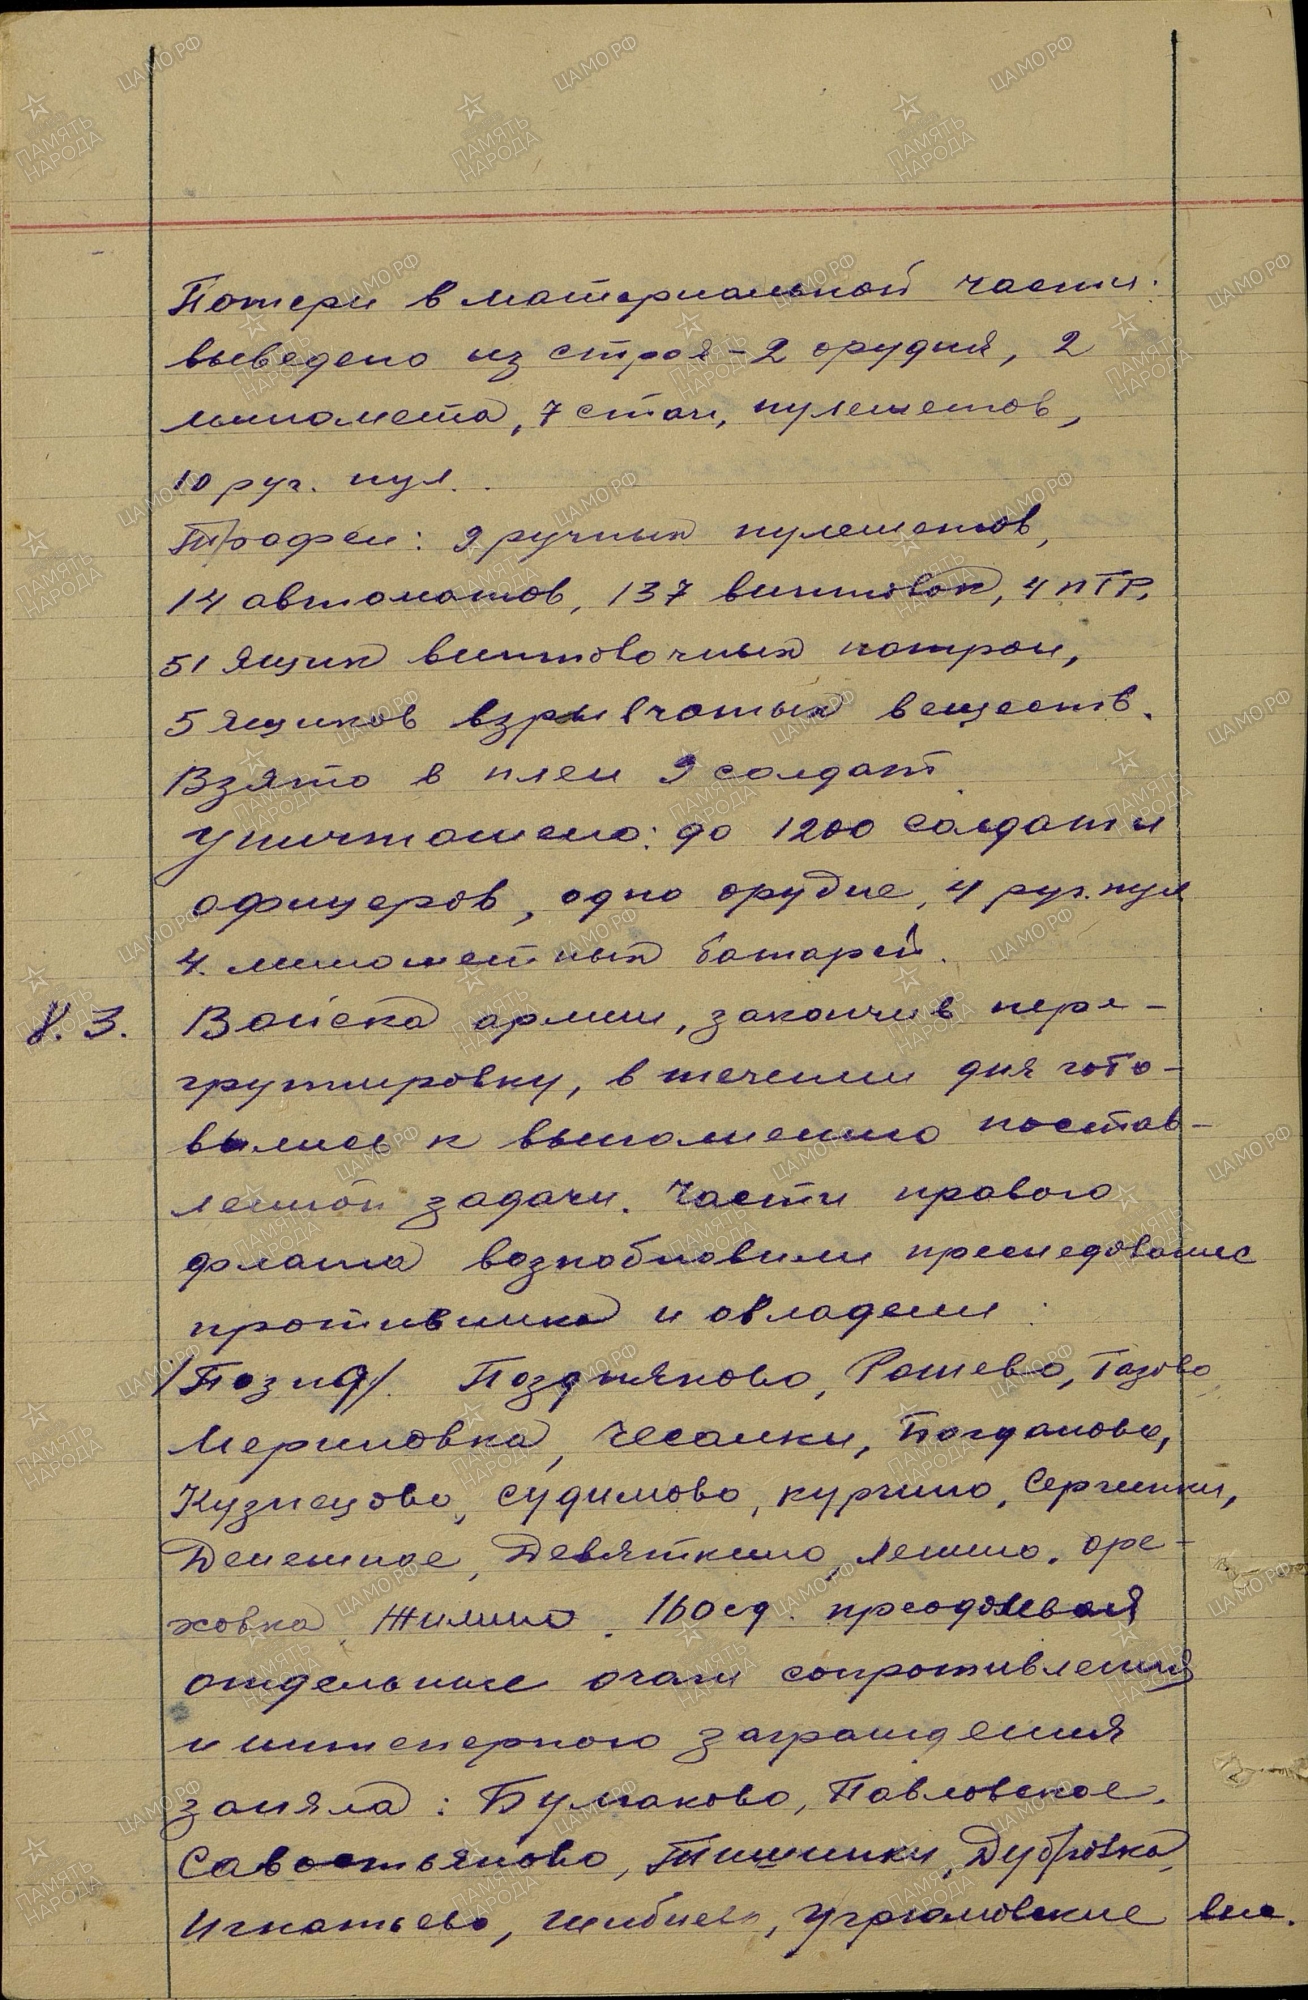 Потери в материальной части:
выведено из строя - 2 орудия, 2
миномета, 7 стан, пулеметов,
10 руч. пул.
Трофеи: 9 ручных пулеметов,
14 автоматов, 137 винтовок, 4 ПТР,
51 ящик винтовочных патрон,
5 ящиков взрывчатых веществ.
Взято в плен 9 солдат.
Уничтожено: до 1200 солдат и
офицеров, одно орудие, 4 руч. пул
4. минометных батарей.
8.3. Войска армии, закончив пере-
группировку, в течении дня гото-
вились к выполнению постав-
ленной задачи. Части правого
фланга возобновили преследование
противника и овладели:
Поздняково, Рашево, Газово
Мериновка, Чесалки, Богданово,
Кузнецово, Судимово, Курчино, Сергинки,
Денежное, Девяткино, Ленино, Оре-
ховка, Жилино. 160 сд. преодолевая
отдельные очаги сопротивления
и инженерного заграждения
заняла: Бумаково, Павловское,
Савостьяново, Тишинки, Дубровка,
Игнатьево, Угрюмовские вые.
ПАМЯТЬ НАРОДА
ЦАМО.РФ